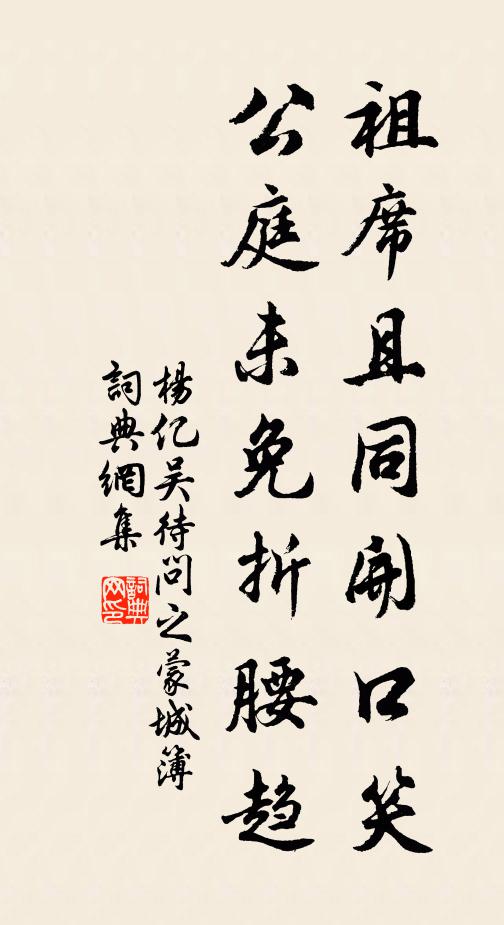 祖席且同開口笑
公庭未免折腰趨
楊亿吴待問之蒙城簿
詞典網集